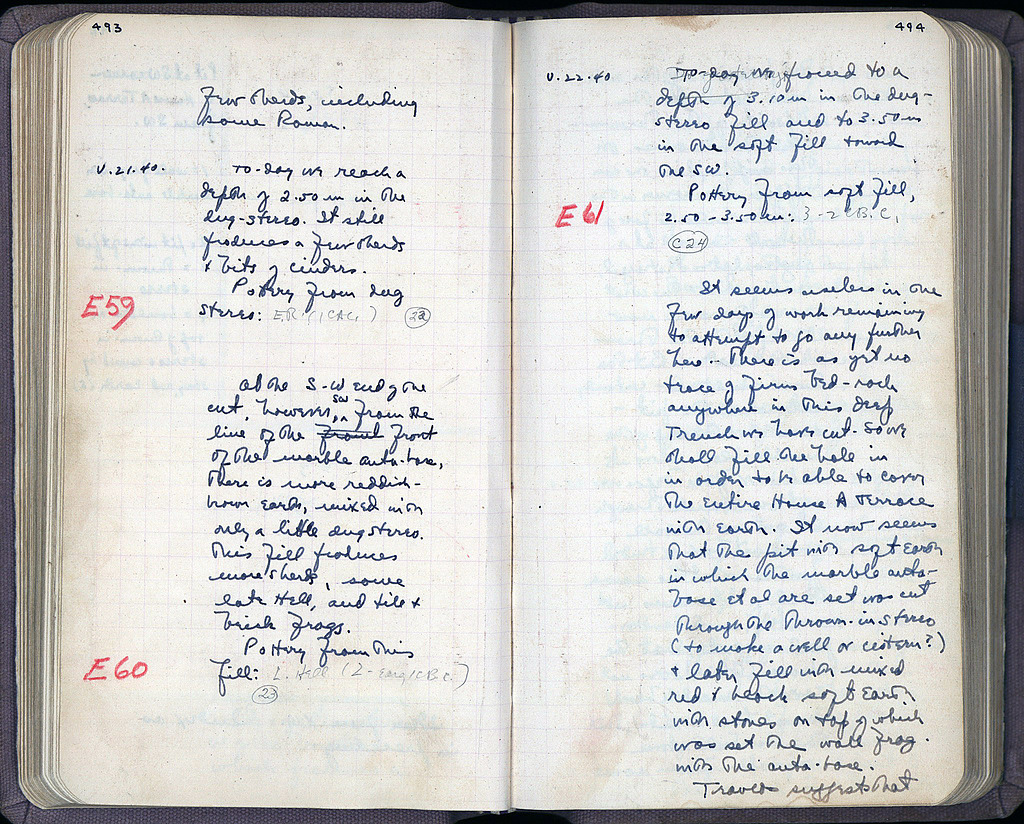 493
few sherds, including
some Roman.
V.21.40.
To-day we reach a
depth of 2.50 m in the
dug-stereo. It still
produces a few sherds
& bits of cinders.
Pottery from dug
E59
stereo: E.R. (1 C A.C.) 22
At the S-W end of the
cut, however, SW
from the
line of the front front
of the marble anta-base,
there is more reddish-
brown earth, mixed with
only a little dug stereo.
This fill produces
more sherds, some
late Hell, and tile &
brick frags.
Pottery from this
E60
fill: L. Hell (2 - early 1 C B.C.)
23
494
V.22.40
To-day we proceed to a
depth of 3.10 m in the dug-
stereo fill and to 3.50 m
in the soft fill toward
the SW.
Pottery from soft fill,
E61
2.50 - 3.50 m: 3 - 2 C B.C.
C 24
It seems useless in the
few days of work remaining
to attempt to go any further
here. There is as yet no
trace of firm bed-rock
anywhere in this deep
trench we have cut. So we
shall fill the hole in
in order to be able to cover
the entire House A Terrace
with earth. It now seems
that the pit with soft earth
in which the marble anta-
base et al are set was cut
through the thrown-in stereo
(to make a well or cistern?)
& later fill with mixed
red & black soft earth
with stones on top of which
was set the wall frag.
with the anta-base.
Travlos suggests that